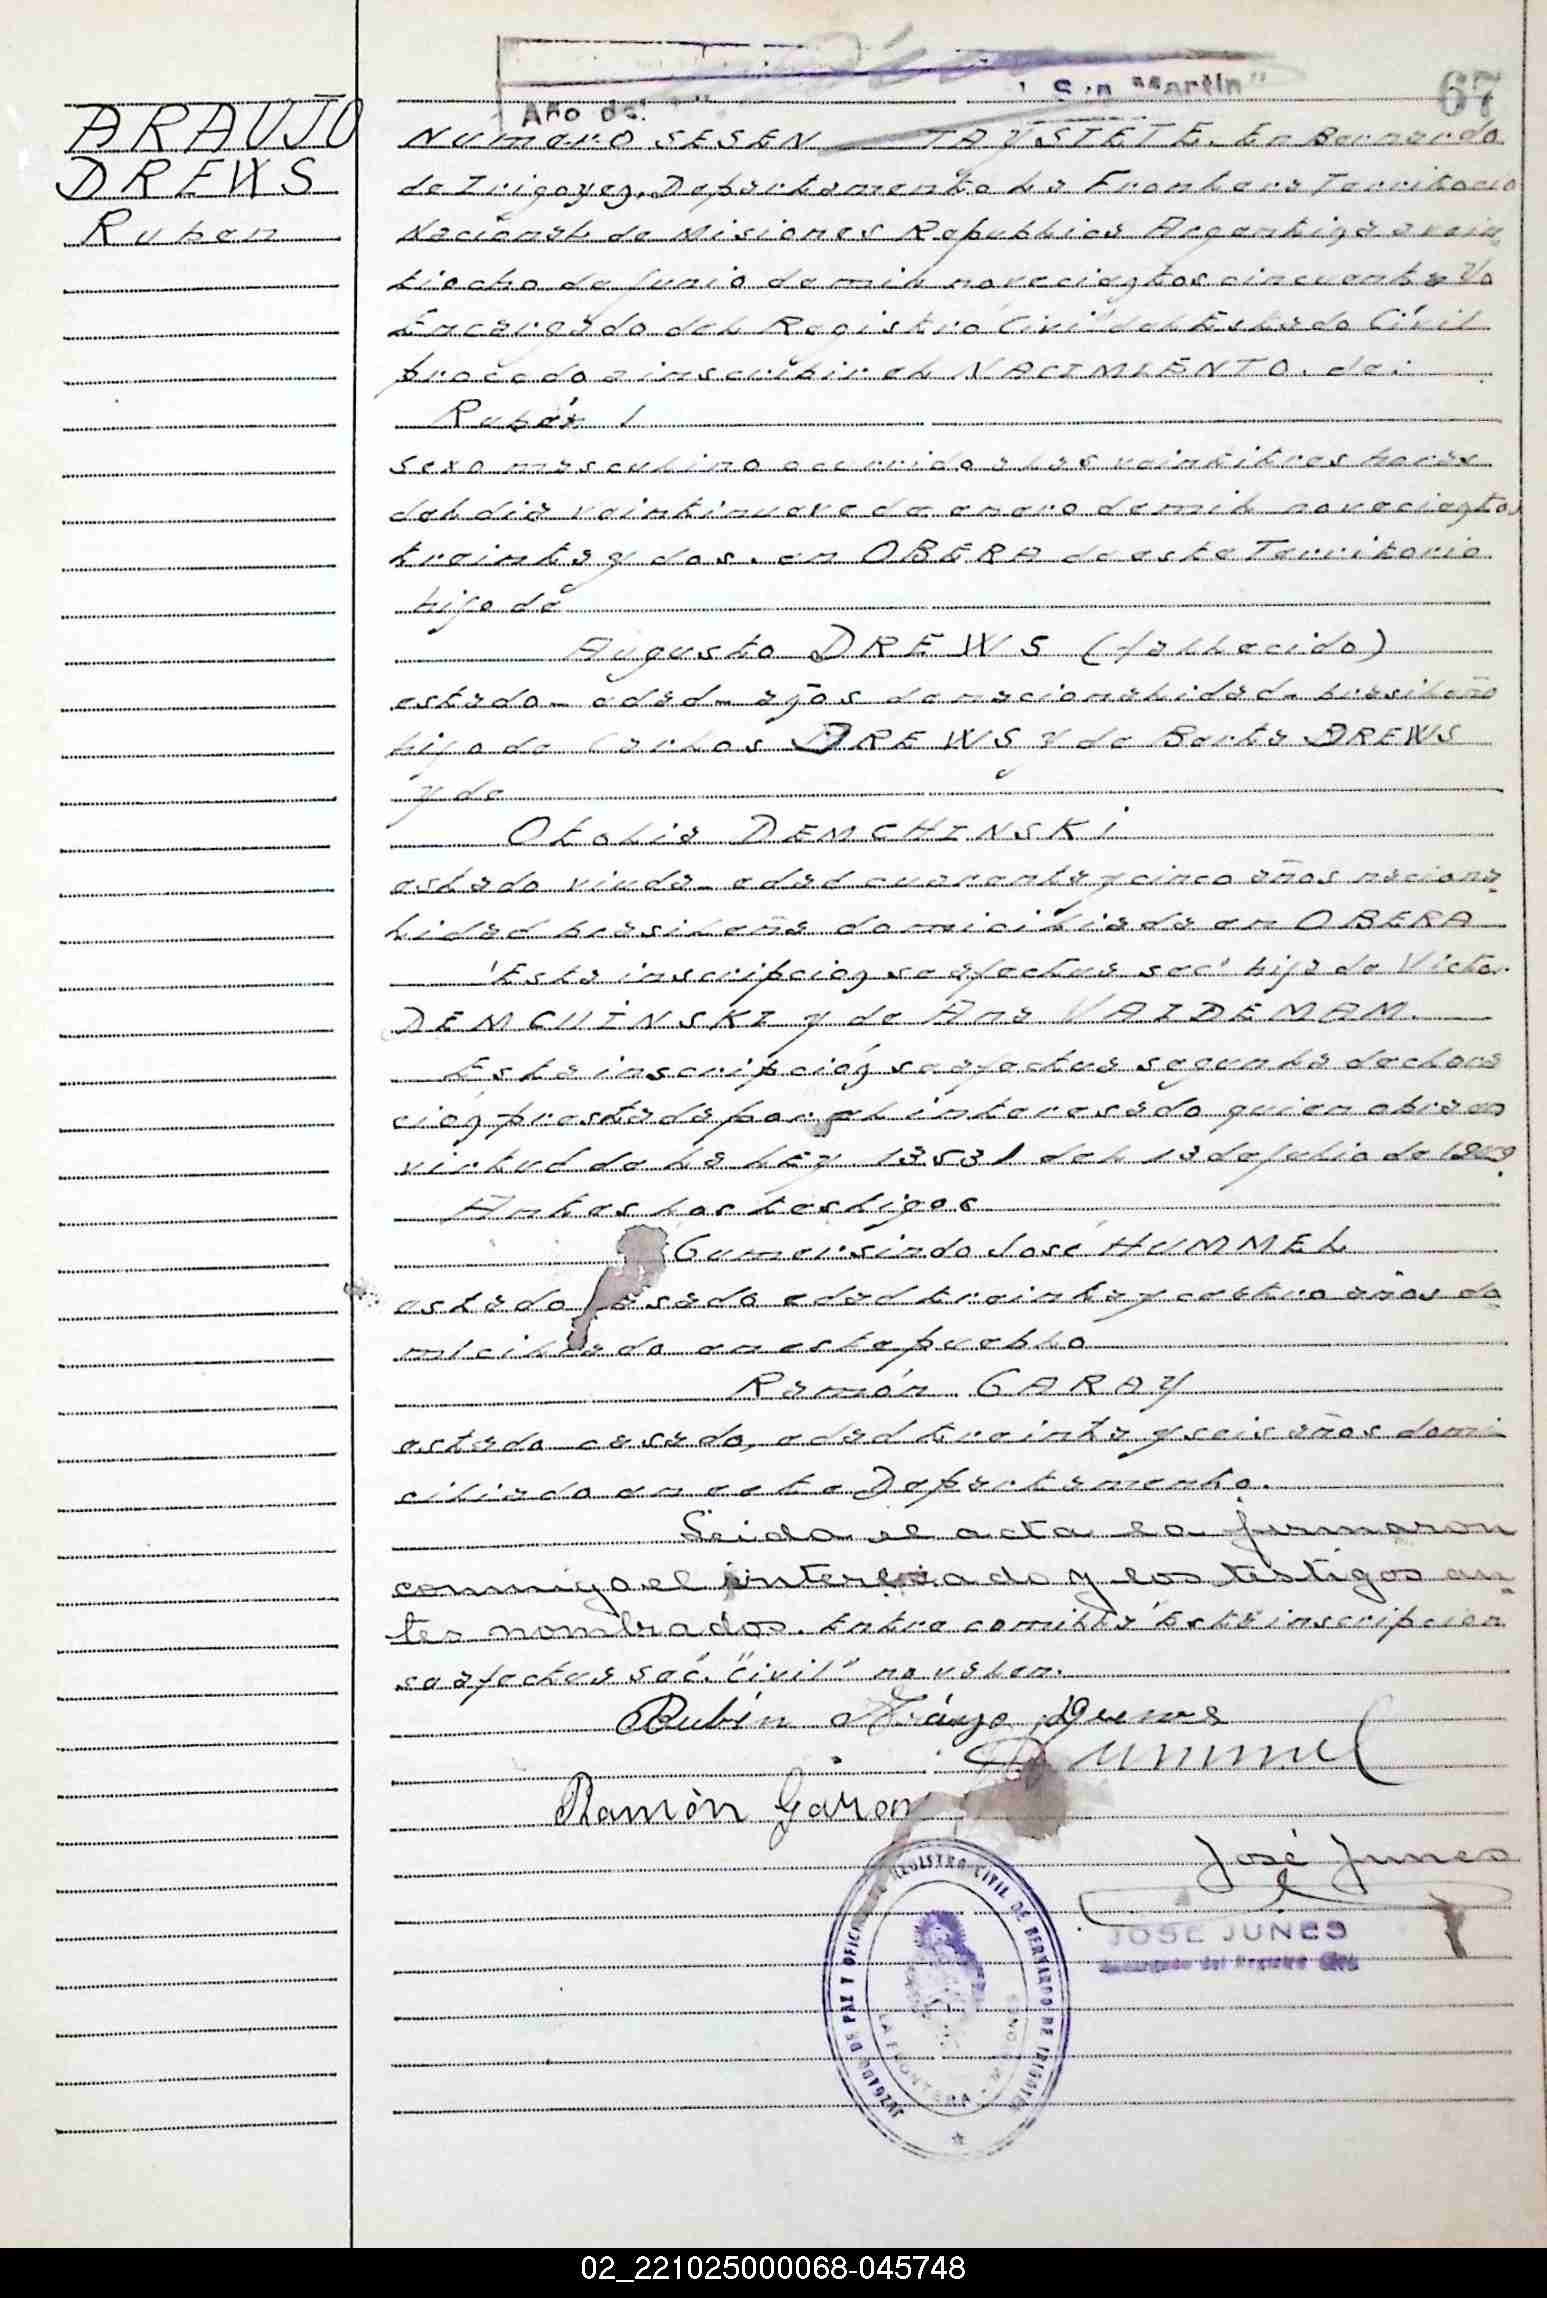 Año del " San Martín"
67
ARAUJO
DREWS
Ruben
Numero SESENTAYSIETE. En Bernardo
de Irigoyen, Departamento La Frontera Territorio
Nacional de Misiones Republica Argentina a vein
tiocho de junio de mil novecientos cincuenta Yo
Encargado del Registro "Civil" del Estado Civil
procedo a inscribir el NACIMIENTO. de:
Rubén
sexo masculino ocurrido a las veintitres horas
del dia veintinueve de enero de mil novecientos
treinta y dos. en OBERA de este Territorio
hijo de
Augusto DREWS (fallecido)
estado - edad - años de nacionalidad brasileño
hijo de Carlos DREWS y de Berta DREWS
y de
Otolia DEMCHINSKI
estado viuda edad cuarenta y cinco años naciona
lidad brasileña domiciliada en OBERA
"Esta inscripción se efectua sec" hija de Victor
DEMCHINSKI y de Ana VAIDEMAM.
Esta inscripción se efectua segun la declara
ción prestada por el interesado quien obra en
virtud de la LEy 13531 del 13 de julio de 1949
Antes los testigos
Gumersindo José HUMMEL
estado casado edad treinta y cuatro años do
miciliado en este pueblo
Ramón GARAY
estado casado, edad treinta y seis años domi
ciliado en este Departamento.
Leida el acta la firmaron
conmigo el interesado y los testigos an
tes nombrados. Entre comillas "Esta inscripcion
se efectua sec". "Civil" no valen.
Rubén Aráujo Drews
Hummel
Ramón Garay
José Junes
JOSE JUNES
Encargado del Registro Civil
JUZGADO DE PAZ Y OFICINA DE REGISTRO CIVIL DE BERNARDO DE IRIGOYEN
LA FRONTERA - MISIONES
02_221025000068-045748